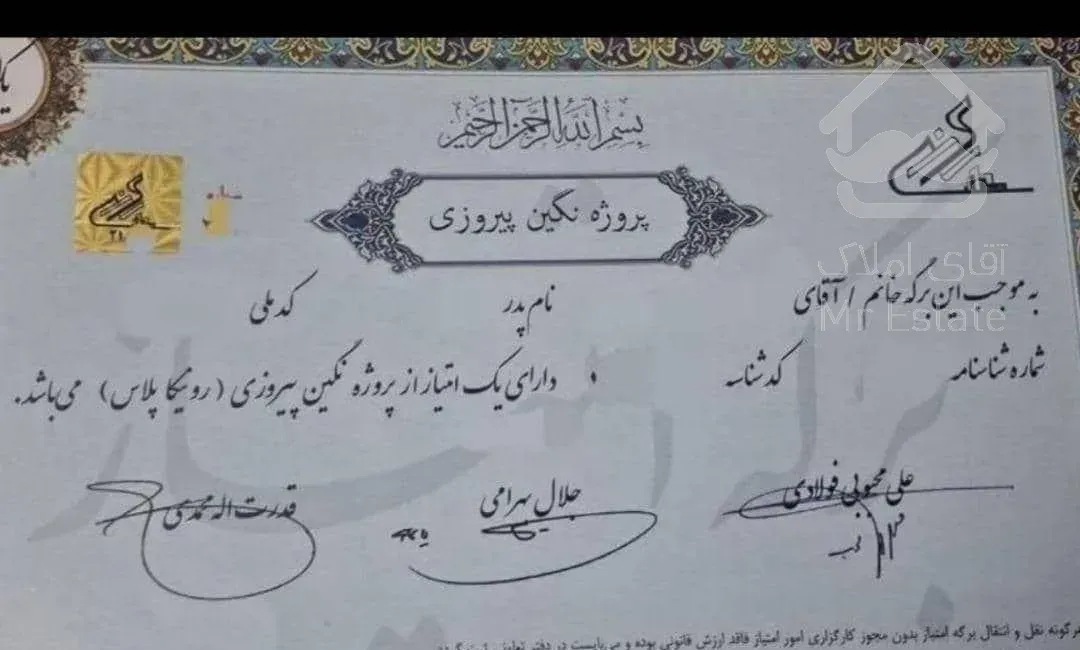 بسم الله الرحمن الرحیم
پروژه نگین پیروزی
۲۱
آقای املاک
Mr Estate
به موجب این برگه خانم / آقای نام پدر کد ملی
شماره شناسنامه کد شناسه دارای یک امتیاز از پروژه نگین پیروزی (رومیکا پلاس) می باشد.
علی محبوبی فولادی جلال بهرامی قدرت اله محمدی
هرگونه نقل و انتقال برگه امتیاز بدون مجوز کارگزاری امور امتیاز فاقد ارزش قانونی بوده و می بایست در دفتر تعاونی ثبت گردد